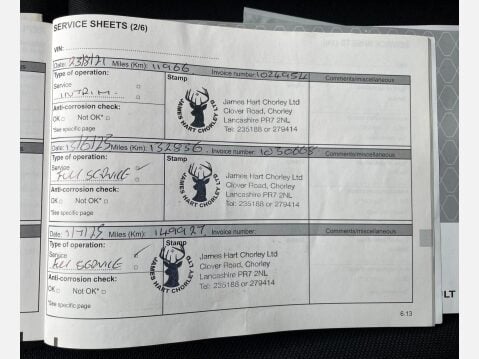 SERVICE SHEETS (2/6)
VIN:
Date: 23/8/21 Miles (Km): 11966 Invoice number: 1024954
Type of operation: Stamp Comments/miscellaneous
Service
INTRIM.
Anti-corrosion check:
OK Not OK*
*See specific page
JAMES HART CHORLEY LTD
James Hart Chorley Ltd
Clover Road, Chorley
Lancashire PR7 2NL
Tel: 235188 or 279414
Date: Miles (Km): 132856 Invoice number:
Type of operation: Stamp Comments/miscellaneous
Service ✓
FULL SERVICE
Anti-corrosion check:
OK Not OK*
*See specific page
JAMES HART CHORLEY LTD
James Hart Chorley Ltd
Clover Road, Chorley
Lancashire PR7 2NL
Tel: 235188 or 279414
Date: Miles (Km): 149927 Invoice number:
Type of operation: Stamp Comments/miscellaneous
Service ✓
FULL SERVICE
Anti-corrosion check:
OK Not OK*
*See specific page
JAMES HART CHORLEY LTD
James Hart Chorley Ltd
Clover Road, Chorley
Lancashire PR7 2NL
Tel: 235188 or 279414
6.13
ULT